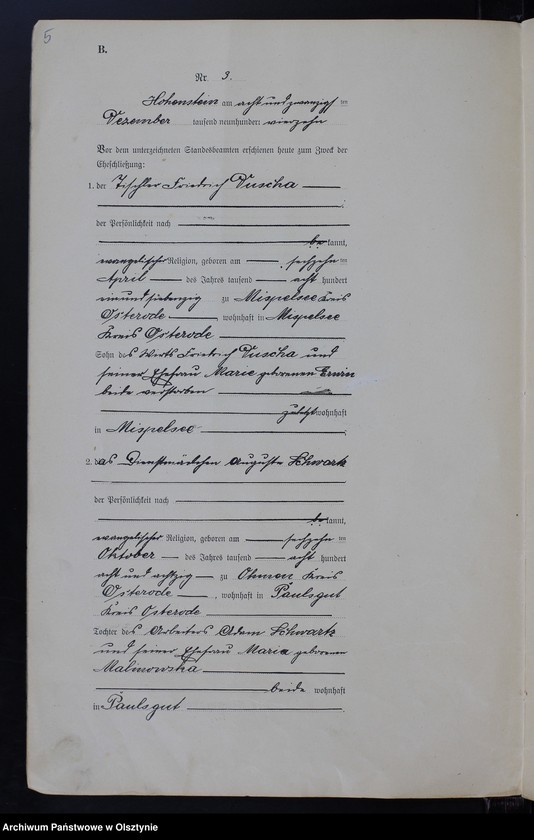 5
B.
Nr. 3.
Hohenstein am acht und zwanzigs ten
Dezember tausend neunhundert vierzehn
Vor dem unterzeichneten Standesbeamten erschienen heute zum Zweck der
Eheschließung:
1. der Tischler Friedrich Duscha
der Persönlichkeit nach
be kannt,
evangelischer Religion, geboren am sechzehn ten
April des Jahres tausend acht hundert
neunundsiebenzig zu Mispelsee Kreis
Osterode, wohnhaft in Mispelsee
Kreis Osterode
Sohn des Wirts Friedrich Duscha und
seiner Ehefrau Marie geborenen Erwin
beide verstorben
zuletzt wohnhaft
in Mispelsee
2. das Dienstmädchen Auguste Schwark
der Persönlichkeit nach
be kannt,
evangelischer Religion, geboren am sechzehn ten
Oktober des Jahres tausend acht hundert
acht und achtzig zu Ohmen Kreis
Osterode, wohnhaft in Paulsgut
Kreis Osterode
Tochter des Arbeiters Adam Schwark
und seiner Ehefrau Maria geborenen
Malinowska
beide wohnhaft
in Paulsgut
Archiwum Państwowe w Olsztynie